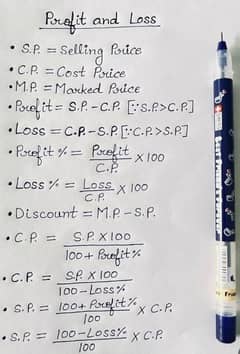 Profit and Loss
• S.P. = Selling Price
• C.P. = Cost Price
• M.P. = Marked Price
• Profit = S.P. - C.P. [∵ S.P. > C.P.]
• Loss = C.P. - S.P. [∵ C.P. > S.P.]
• Profit % = Profit / C.P. × 100
• Loss % = Loss / C.P. × 100
• Discount = M.P. - S.P.
• C.P. = S.P. × 100 / 100 + Profit%
• C.P. = S.P. × 100 / 100 - Loss%
• S.P. = 100 + Profit% / 100 × C.P.
• S.P. = 100 - Loss% / 100 × C.P.